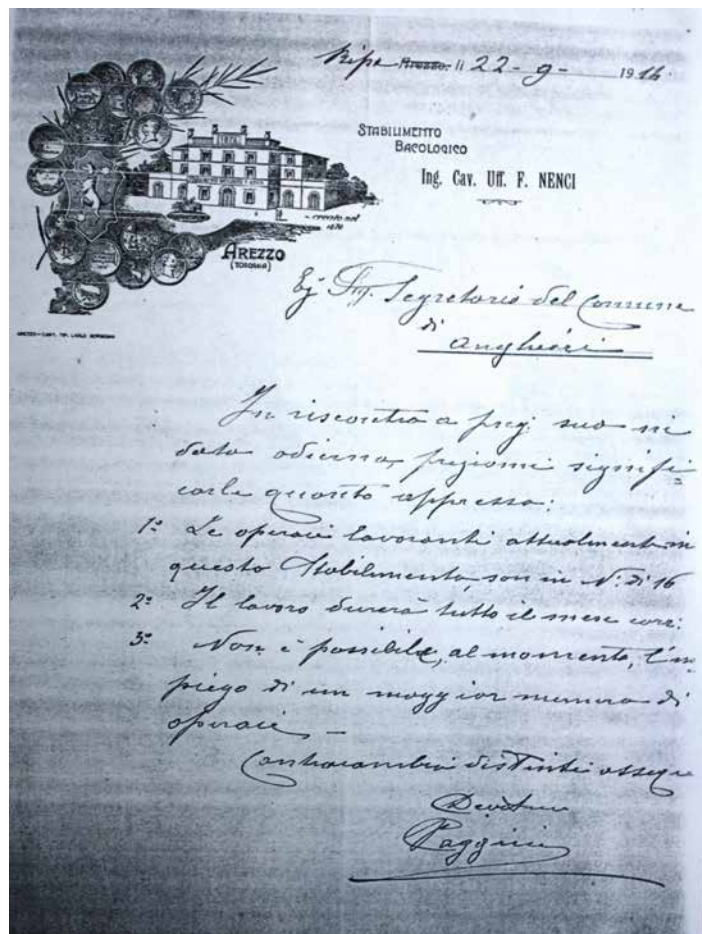 Ripa Arezzo, li 22-9- 1916.
STABILIMENTO
BACOLOGICO
Ing. Cav. Uff. F. NENCI
creato nel
1870
AREZZO
(TOSCANA)
Eg. Sig. Segretario del Comune
di
Anghiari
In riscontro a preg. suo in
data odierna, pregiomi signifi-
carle quanto appresso:
1º Le operaie lavoranti attualmente in
questo Stabilimento, son in Nº di 16
2º Il lavoro durerà tutto il mese corr:
3º Non è possibile, al momento, l'im
piego di un maggior numero di
operaie —
Contracambio distinti ossequi
Paggini